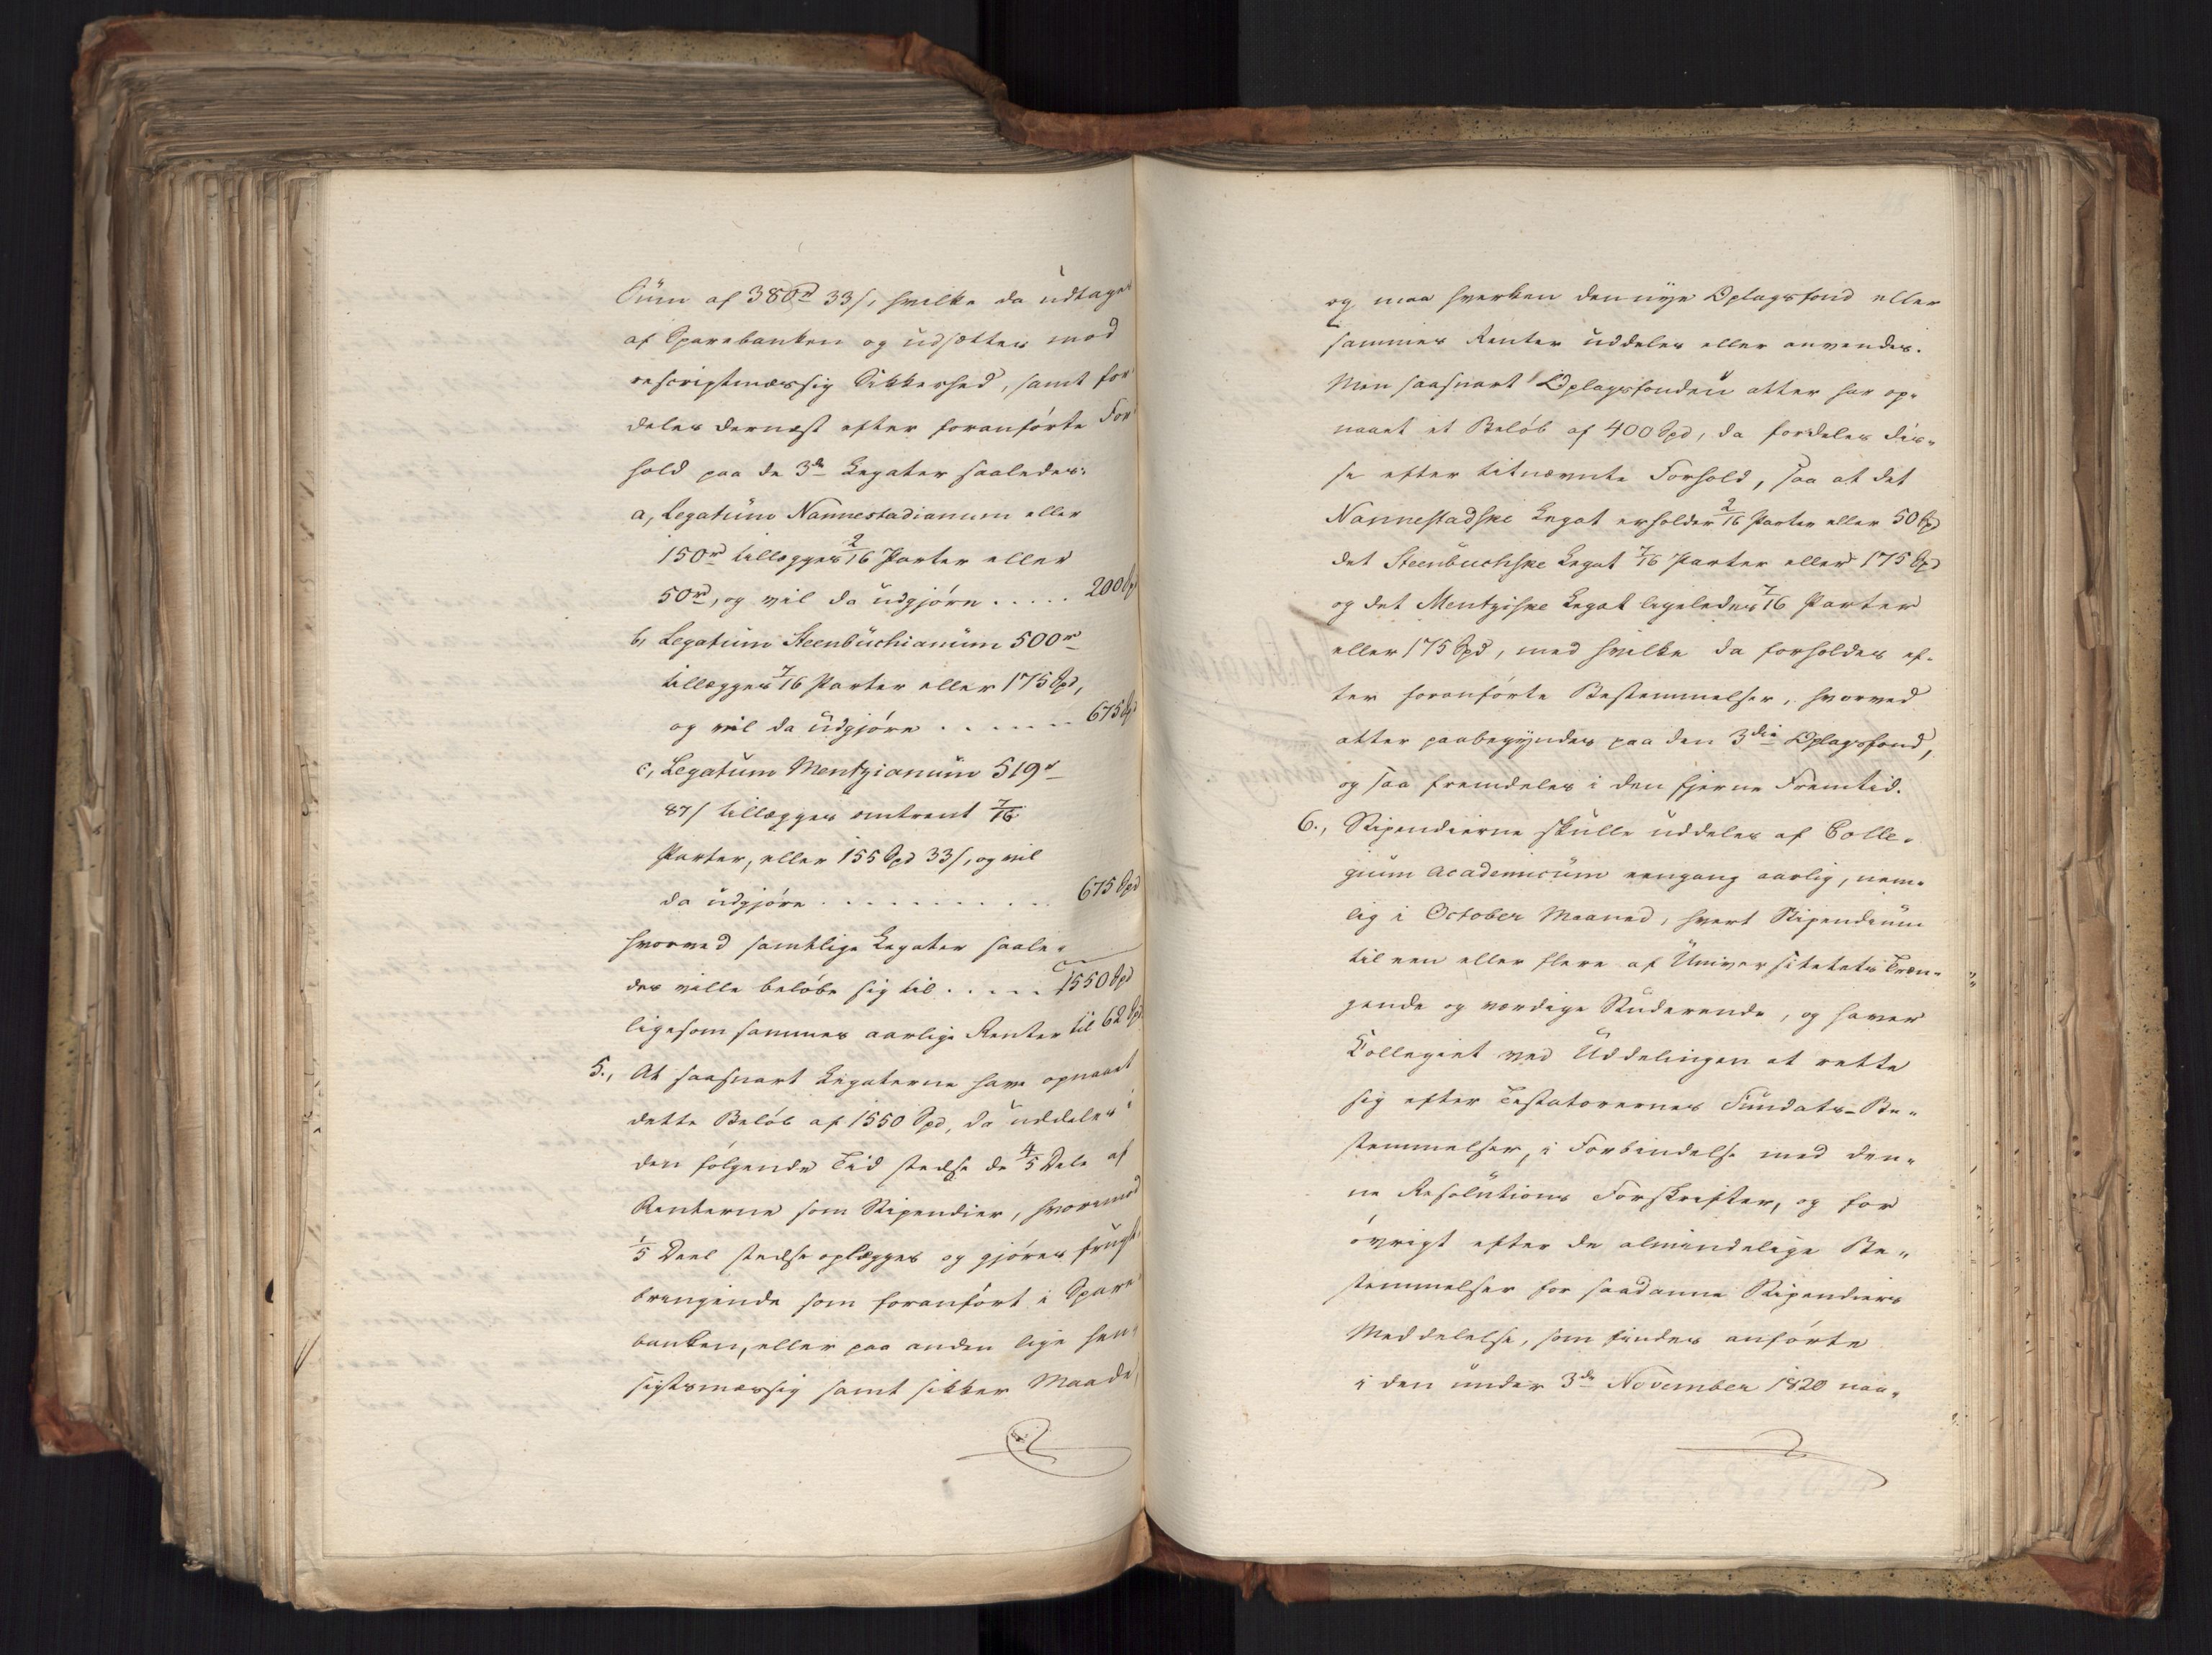 Sum af 380rd 33/, hvilke da udtages
af Sparebanken og udsættes mod
rescriptmæssig Sikkerhed, samt for-
deles dernæst efter foranførte For-
hold paa de 3de Legater saaledes:
a, Legatum Nannestadianum eller
150rd tillægges 2/16 Parter eller
50rd, og vil da udgjøre . . . . . 200 Spd
b, Legatum Steenbuchianum 500rd
tillægges 7/16 Parter eller 175 Spd,
og vil da udgjøre . . . . . . 675 Spd
c, Legatum Mentzianum 519rd
87/ tillægges omtrent 7/16
Parter, eller 155 Spd 33/, og vil
da udgjøre . . . . . . . . . . 675 Spd
hvorved samtlige Legater saale-
des ville beløbe sig til . . . . . 1550 Spd
ligesom sammes aarlige Renter til 62 Spd
5., At saasnart Legaterne have opnaaet
dette Beløb af 1550 Spd, da uddeles i
den følgende Tid stedse de 4/5 Dele af
Renterne som Stipendier, hvorimod
1/5 Deel stedse oplægges og gjøres frugt-
bringende som foranført i Spare-
banken, eller paa anden lige hen-
sigtsmæssig samt sikker Maade,
og maa hverken den nye Oplagsfond eller
sammes Renter uddeles eller anvendes.
Men saasnart Oplagsfonden atter har op-
naaet et Beløb af 400 Spd, da fordeles dis-
se efter titnævnte Forhold, saa at det
Nannestadske Legat erholder 2/16 Parter eller 50 Spd
det Steenbuchske Legat 7/16 Parter eller 175 Spd
og det Mentziske Legat ligeledes 7/16 Parter
eller 175 Spd, med hvilke da forholdes ef-
ter foranførte Bestemmelser, hvorved
atter paabegyndes paa den 3die Oplagsfond,
og saa fremdeles i den fjerne Fremtid.
6., Stipendierne skulle uddeles af Colle-
gium academicum eengang aarlig, nem-
lig i October Maaned, hvert Stipendium
til een eller flere af Universitetets Træn-
gende og værdige Studerende, og haver
Collegiet ved Uddelingen at rette
sig efter Testatorernes Fundats-Be-
stemmelser, i Forbindelse med den-
ne Resolutions Forskrifter, og for
øvrigt efter de almindelige Be-
stemmelser for saadanne Stipendiers
Meddelelse, som findes anførte
i den under 3de November 1820 naa-